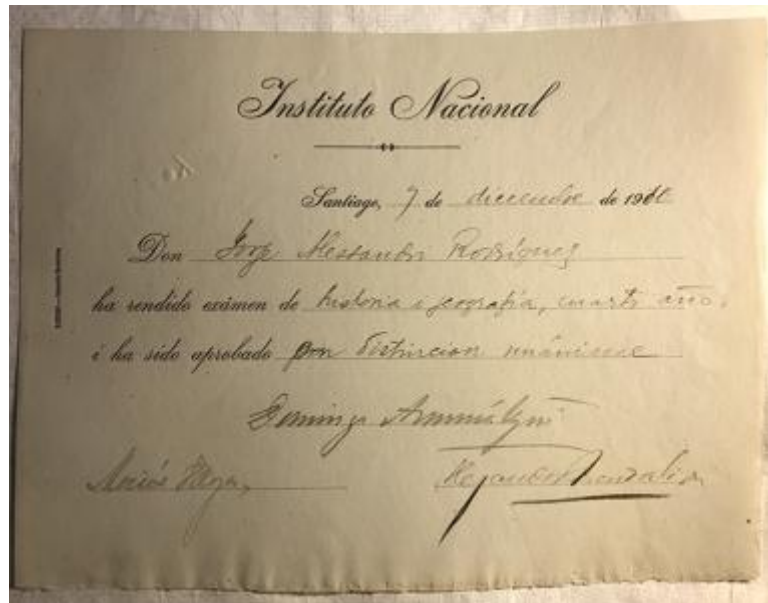 Instituto Nacional
Santiago, 7 de diciembre de 191
Don Jorje Alessandri Rodríguez
ha rendido exámen de historia i jeografía, cuarto año,
i ha sido aprobado con distincion unánime
Domingo Amunátegui